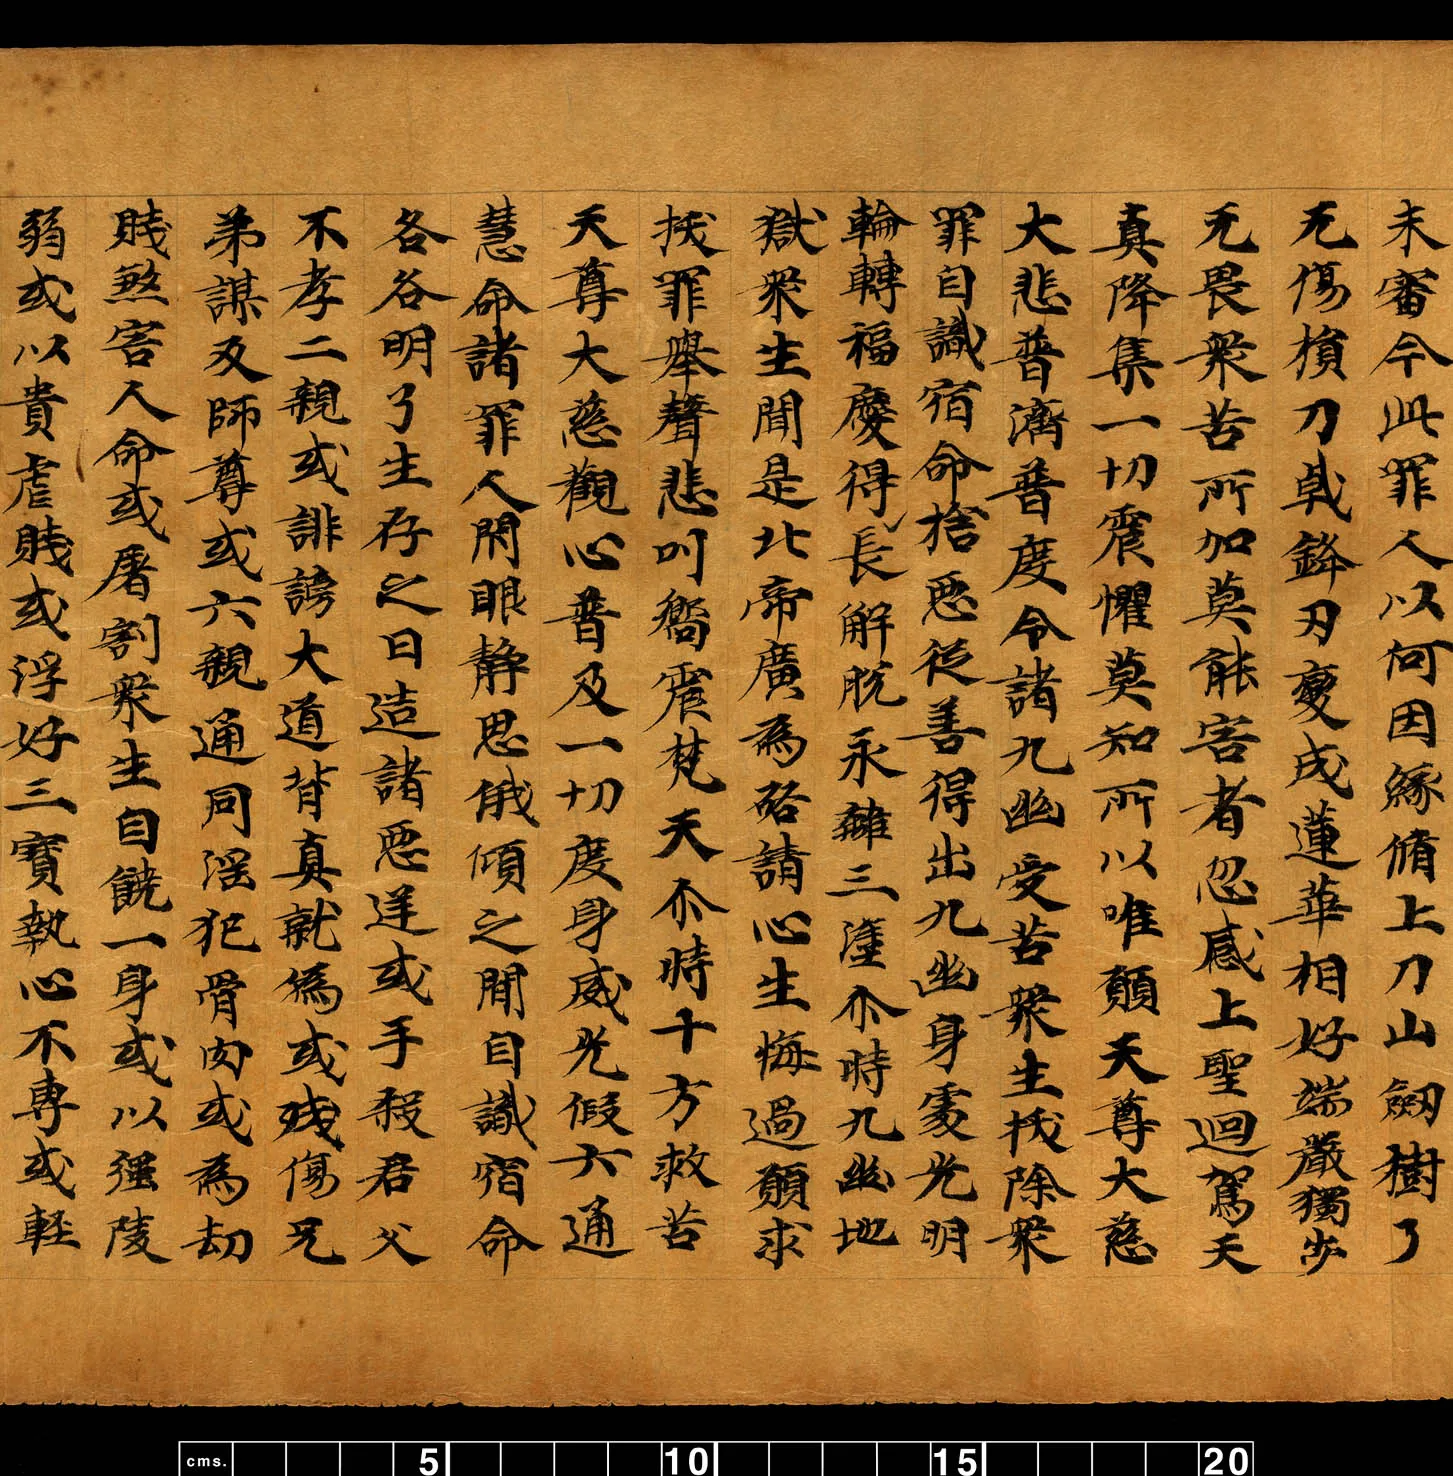 未審今此罪人以何因緣脩上刀山劒樹了
无傷損刀戟鋒刃變成蓮華相好端嚴獨步
无畏衆苦所加莫能害者忍感上聖迴駕天
真降集一切震懼莫知所以唯願天尊大慈
大悲普濟普度令諸九幽受苦衆生拔除衆
罪自識宿命捨惡從善得出九幽身處光明
輪轉福慶得長解脫永離三塗尒時九幽地
獄衆生聞是北帝廣為啓請心生悔過願求
拔罪舉聲悲叫響震梵天尒時十方救苦
天尊大慈觀心普及一切度身威光假六通
慧命諸罪人閇眼静思俄傾之間自識宿命
各各明了生存之日造諸惡逆或手殺君父
不孝二親或誹謗大道背真就偽或殘傷兄
弟謀及師尊或六親通同淫犯骨肉或為劫
賊煞害人命或屠割衆生自饒一身或以強陵
弱或以貴虐賤或浮好三寶執心不專或輕
cms. 5 10 15 20